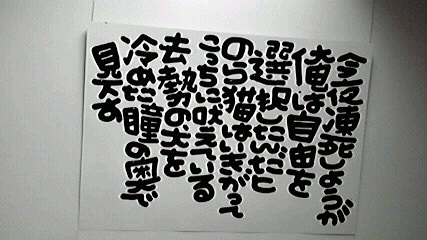 今夜凍死しようが
俺は自由を
選択したんだと
のら猫はいきがって
こっちに吠えている
去勢の犬を
冷めた瞳の奥で
見下す